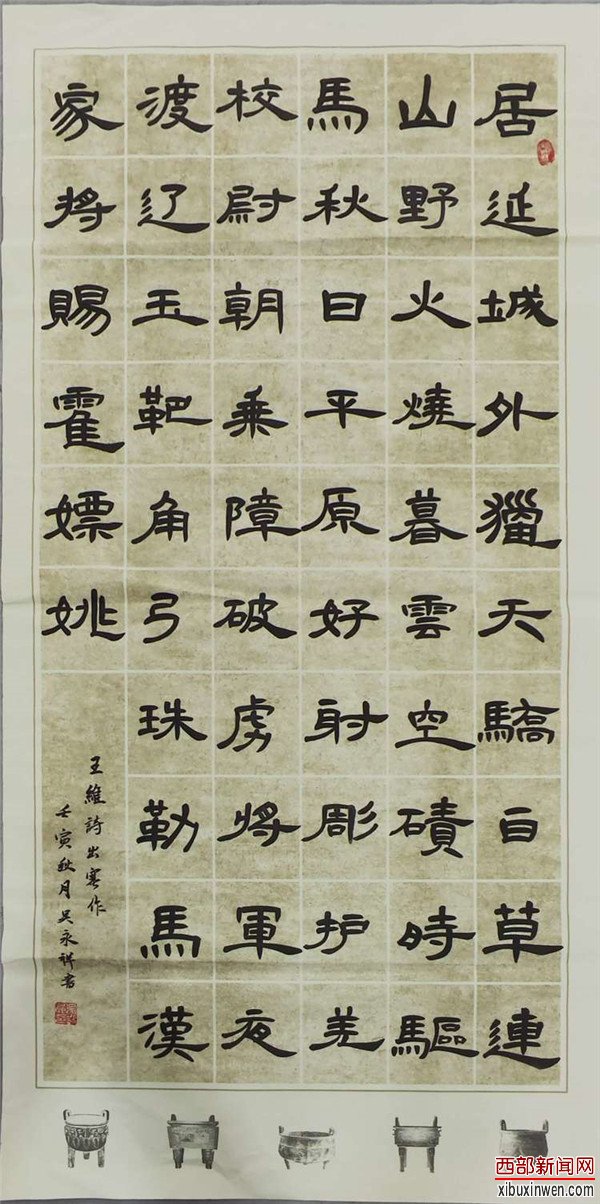 居延城外獵天驕白草連
山野火燒暮雲空磧時驅
馬秋日平原好射彫护羌
校尉朝乘障破虏將軍夜
渡辽玉靶角弓珠勒馬漢
家將賜霍嫖姚
王維詩出塞作
壬寅秋月吴永祥書
西部新闻网
xibuxinwen.com